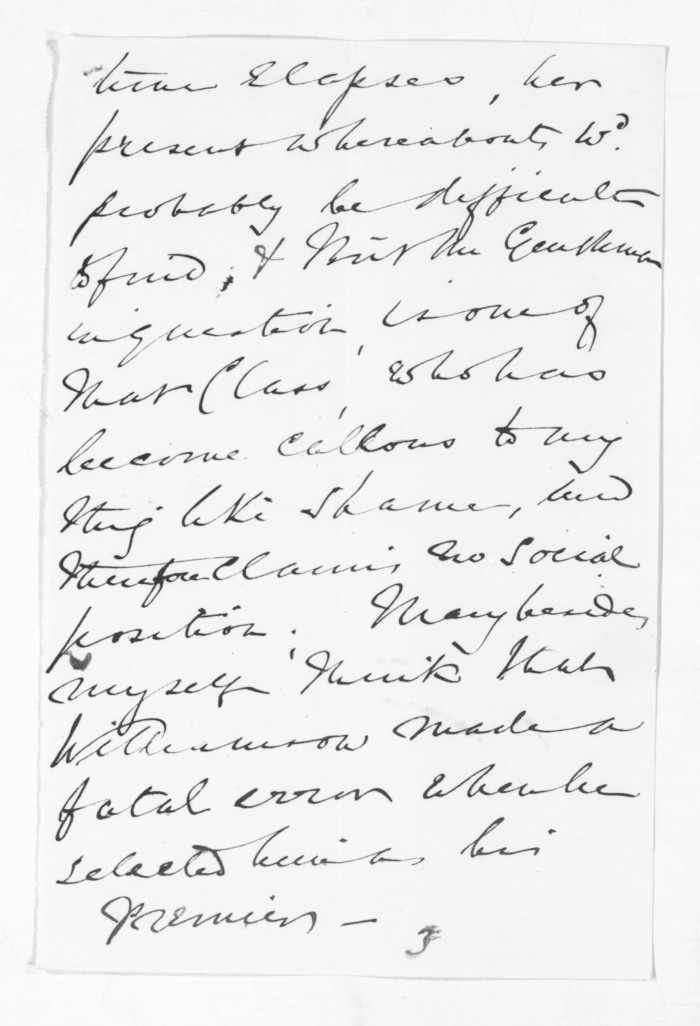 time Elapses, her
present whereabouts, wd.
probably be difficult
to find, & that the Gentleman
in question, is one of
that Class, who has
become callous to any
thing like Shame, and
therefore Claims no Social
position. Many besides
myself think that
Williamson made a
fatal error when he
selected him as his
Premier —
3